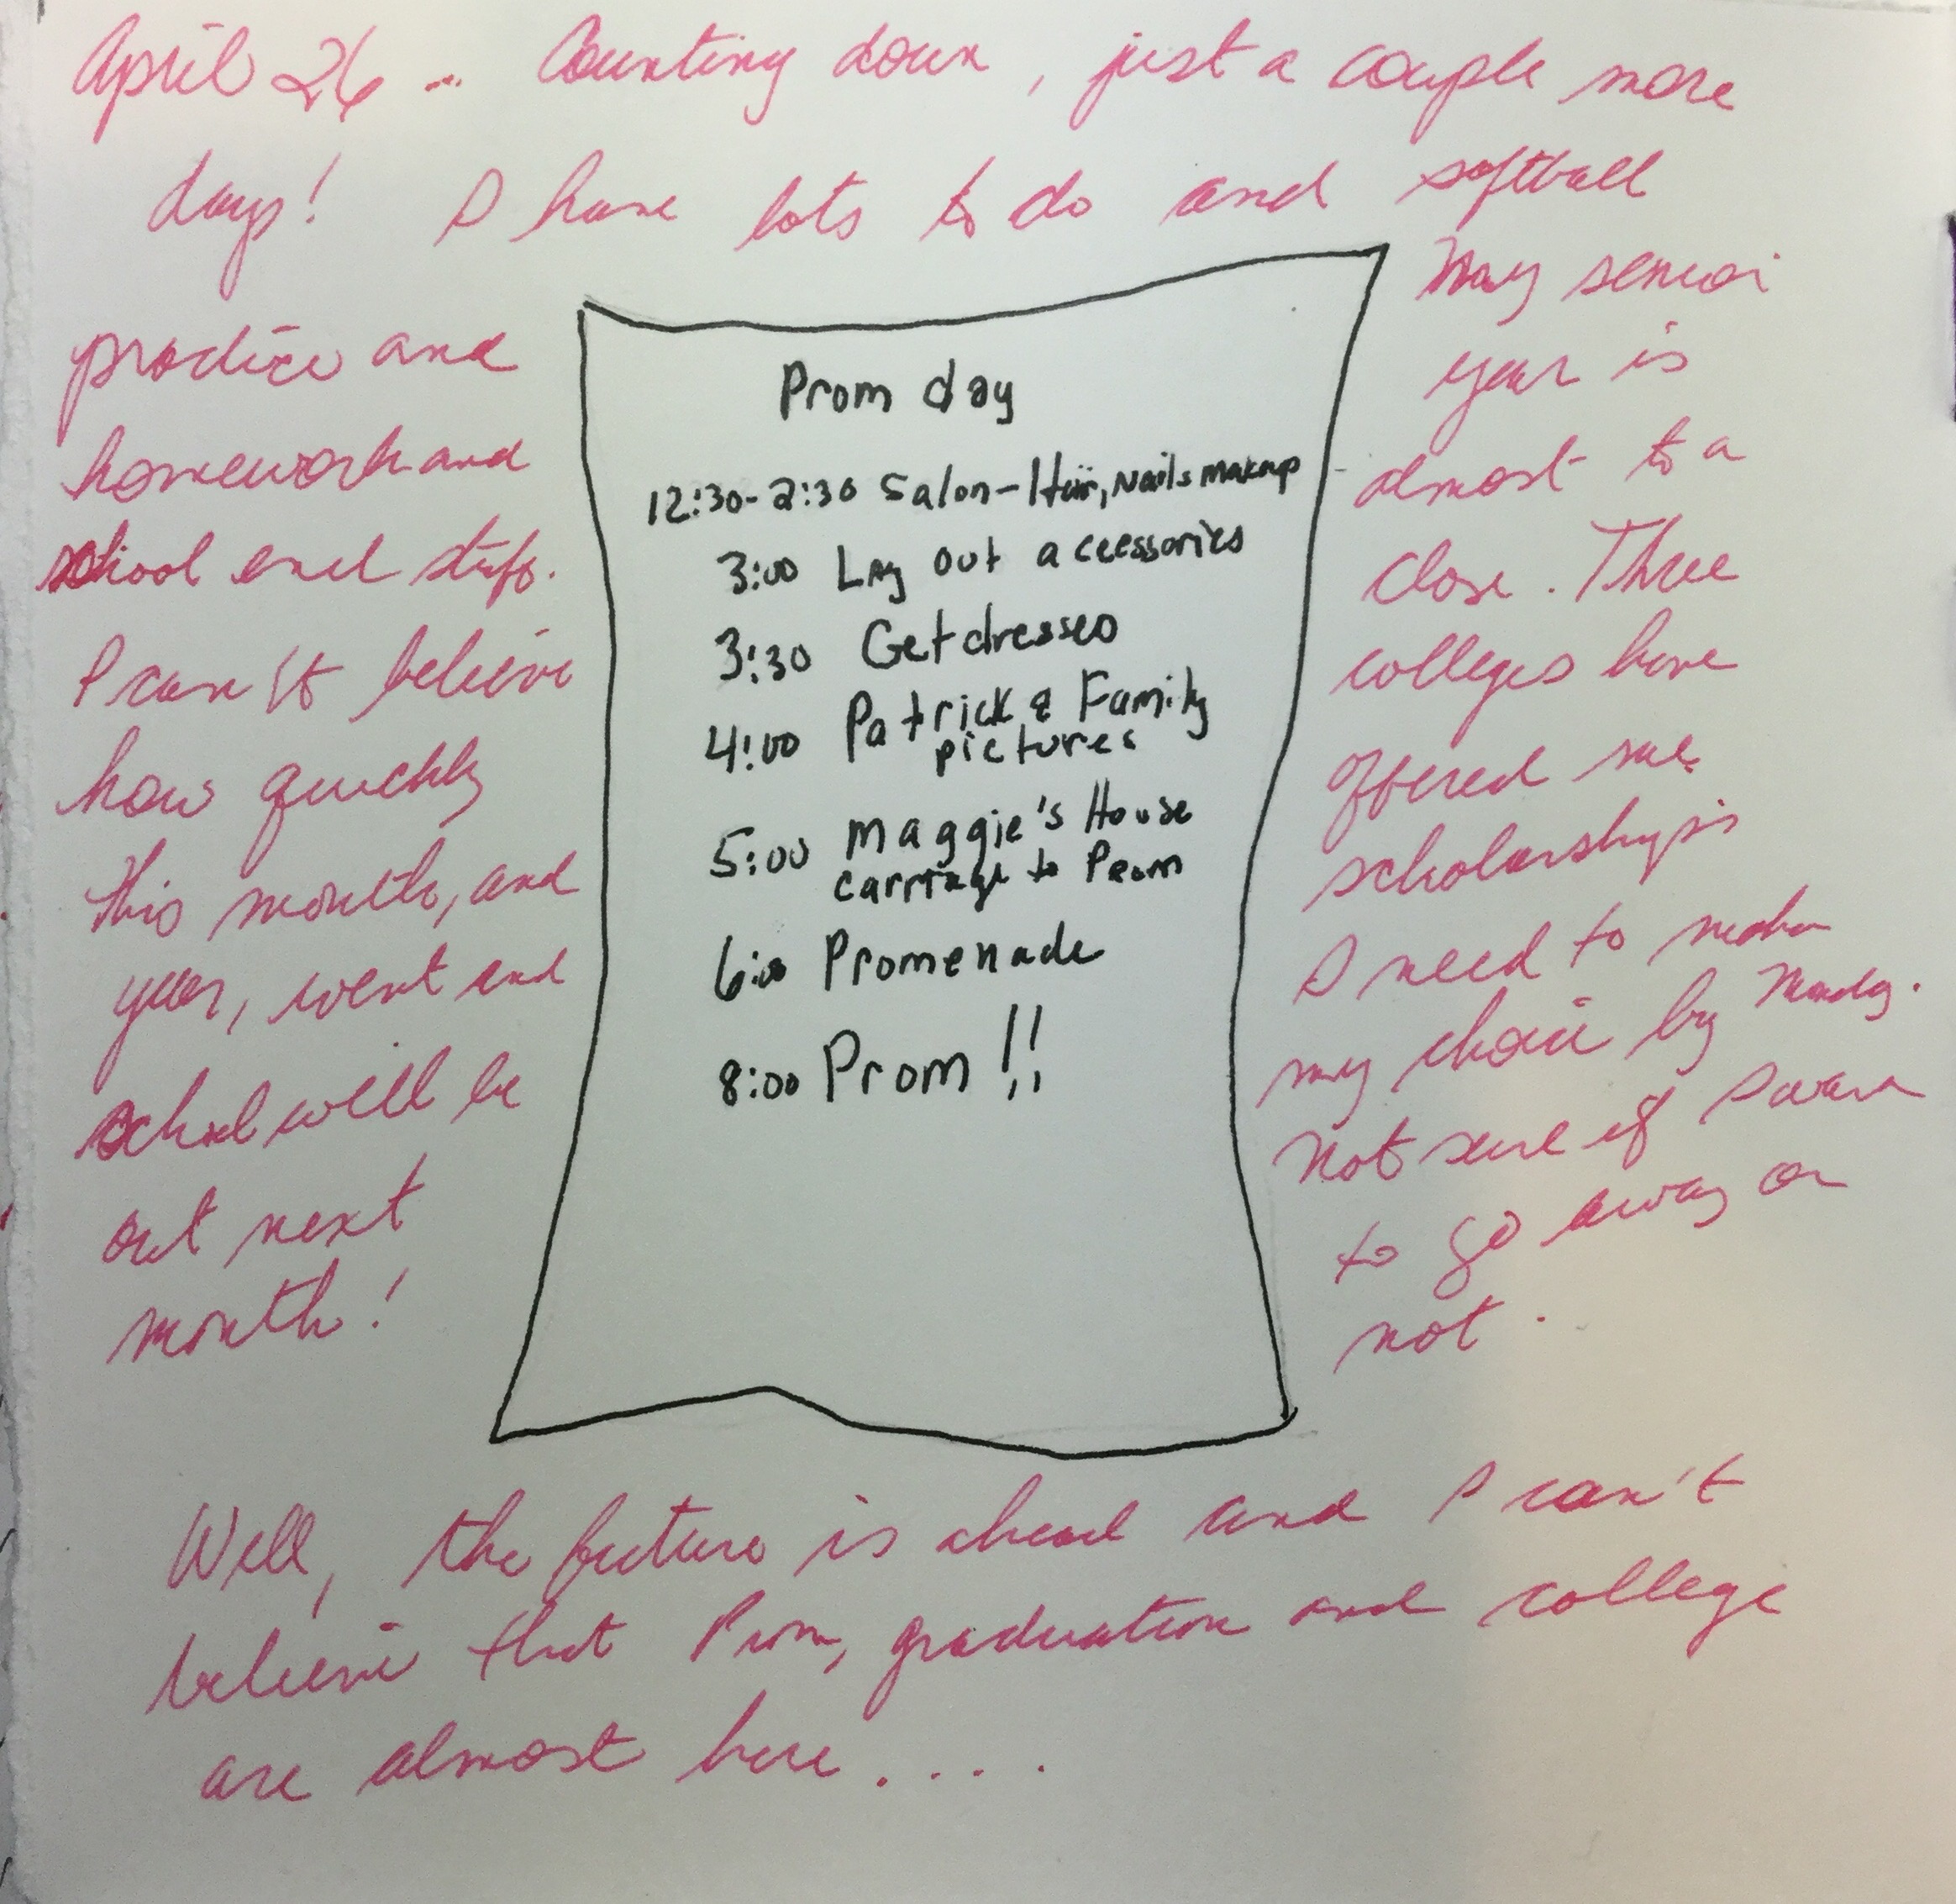 April 26 ... Counting down, just a couple more
days! I have lots to do and softball
practice and
homework and
school end stuff.
I can't believe
how quickly
this month, and
year, went and
school will be
out next
month!
Prom day
12:30-2:30 Salon-Hair, Nails makeup
3:00 Lay out accessories
3:30 Get dressed
4:00 Patrick & Family
pictures
5:00 Maggie's House
carriage to Prom
6:00 Promenade
8:00 Prom!!
My senior
year is
almost to a
close. Three
colleges have
offered me
scholarships
I need to make
my choice by Monday.
Not sure if I want
to go away or
not.
Well, the future is ahead and I can't
believe that Prom, graduation and college
are almost here....